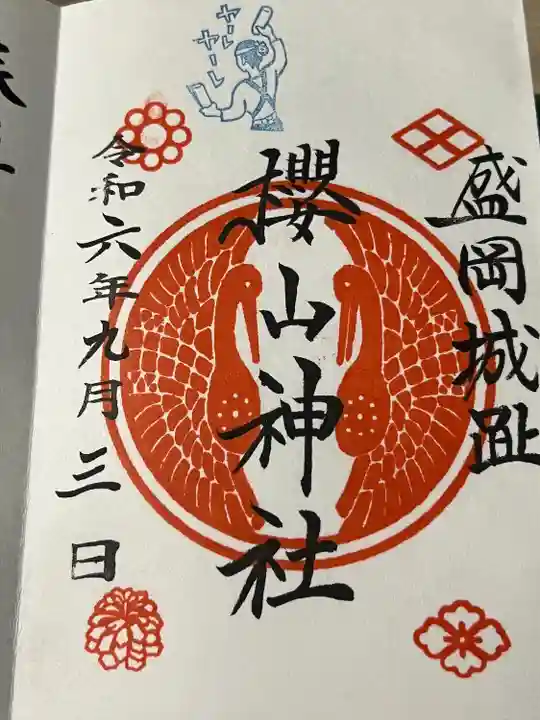 盛岡城趾
櫻山神社
令和六年九月三日
ヤーレ
ヤーレ